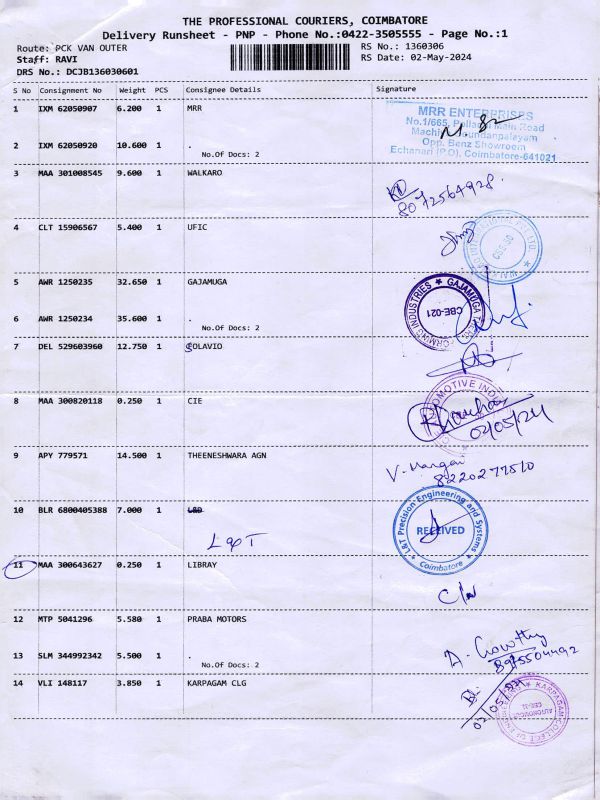 THE PROFESSIONAL COURIERS, COIMBATORE
Delivery Runsheet - PNP - Phone No.:0422-3505555 - Page No.:1
Route: PCK VAN OUTER
RS No.: 1360306
Staff: RAVI
RS Date: 02-May-2024
DRS No.: DCJB136030601
S No Consignment No Weight PCS Consignee Details Signature
1 IXM 62050907 6.200 1 MRR
MRR ENTERPRISES
No.1/665, Pollachi Main Road
Machin Goundanpalayam
Opp. Benz Showroom
Echanari (P.O), Coimbatore-641021
2 IXM 62050920 10.600 1 .
No.Of Docs: 2
3 MAA 301008545 9.600 1 WALKARO
8072564928.
4 CLT 15906567 5.400 1 UFIC
5 AWR 1250235 32.650 1 GAJAMUGA
GAJAMUGA FORMING INDUSTRIES
CBE-021
6 AWR 1250234 35.600 1 .
No.Of Docs: 2
7 DEL 529603960 12.750 1 SOLAVIO
8 MAA 300820118 0.250 1 CIE
AUTOMOTIVE
02/05/24
9 APY 779571 14.500 1 THEENESHWARA AGN
8220277510
10 BLR 6800405388 7.000 1 L&D
L&T
L&T Precision Engineering and Systems
RECEIVED
Coimbatore
11 MAA 300643627 0.250 1 LIBRAY
12 MTP 5041296 5.580 1 PRABA MOTORS
A. Gowthy
8975504492
13 SLM 344992342 5.500 1 .
No.Of Docs: 2
14 VLI 148117 3.850 1 KARPAGAM CLG
KARPAGAM COLLEGE OF ENGINEERING
AUTONOMOUS